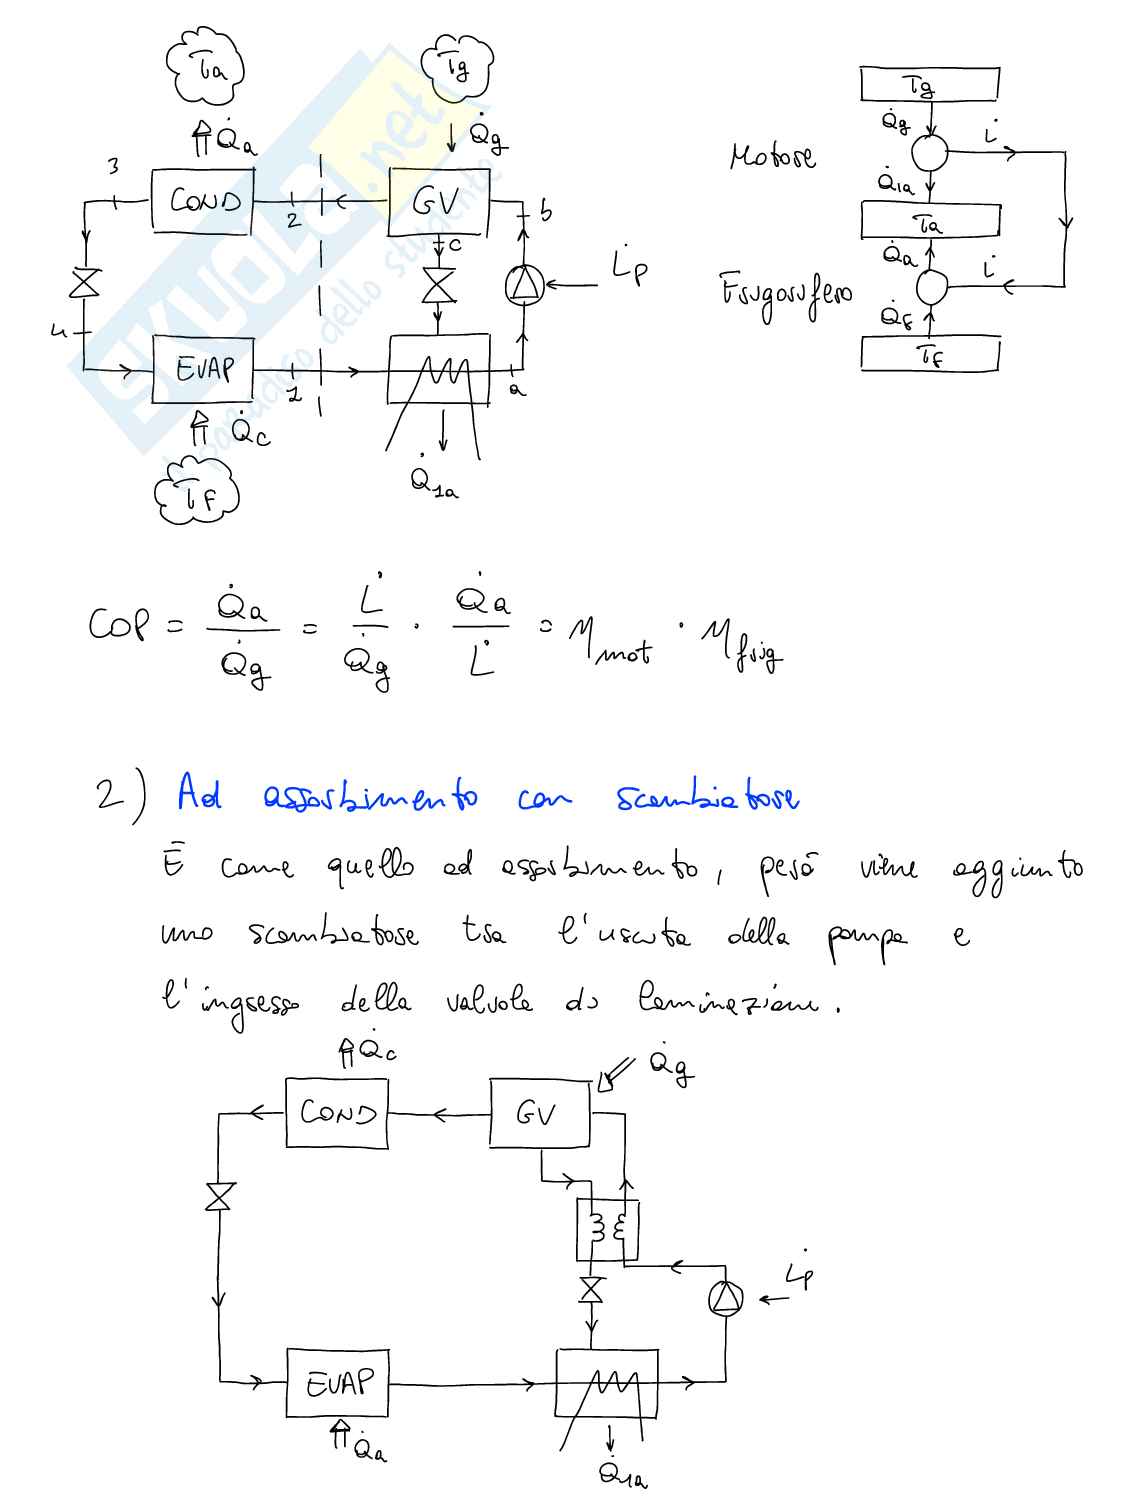 Ta
Tg
Q̇a
Q̇g
3
COND
2
GV
b
c
L̇p
4
EVAP
1
a
Q̇c
Q̇1a
TF
Tg
Q̇g
L̇
Motore
Q̇1a
Ta
Q̇a
L̇
Frigorifero
Q̇f
TF
SKUOLA.net
il paradiso dello studente
COP = Q̇a / Q̇g = L̇ / Q̇g · Q̇a / L̇ = ηmot · ηfrig
2) Ad assorbimento con scambiatore
È come quello ad assorbimento, però viene aggiunto
uno scambiatore tra l'uscita della pompa e
l'ingresso della valvola di laminazione.
Q̇c
Q̇g
COND
GV
L̇p
EVAP
Q̇a
Q̇1a